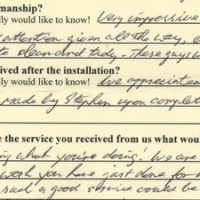 manship?
ly would like to know! Very impressive
attention given all the way,
clean and tidy - These guys
ived after the installation?
lly would like to know! I've appreciated
made by Stephen upon complet
e the service you received from us what wou
ing what you're doing'. We are
work you have just done for
such a good service could be